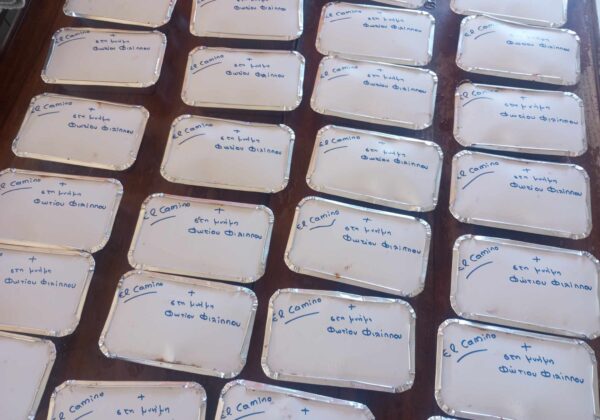 Φωτίου Φιλίππου
El Camino
+
στη μνήμη
Φωτίου Φιλίππου
El Camino
+
στη μνήμη
Φωτίου Φιλίππου
El Camino
+
στη μνήμη
Φωτίου Φιλίππου
El Camino
El Camino
+
στη μνήμη
Φωτίου Φιλίππου
El Camino
+
στη μνήμη
Φωτίου Φιλίππου
El Camino
+
στη μνήμη
Φωτίου Φιλίππου
El Camino
+
στη μνήμη
Φωτίου Φιλίππου
El Camino
+
στη μνήμη
Φωτίου Φιλίππου
El Camino
+
στη μνήμη
Φωτίου Φιλίππου
+
στη μνήμη
Φωτίου Φιλίππου
El Camino
+
στη μνήμη
Φωτίου Φιλίππου
El Camino
+
στη μνήμη
Φωτίου Φιλίππου
El Camino
+
στη μνήμη
Φωτίου Φιλίππου
+
στη μνήμη
Φωτίου Φιλίππου
El Camino
+
στη μνήμη
Φωτίου Φιλίππου
El Camino
+
στη μνήμη
Φωτίου Φιλίππου
El Camino
+
στη μνήμη
Φωτίου Φιλίππου
El Camino
+
στη μνήμη
Φωτίου Φιλίππου
El Camino
+